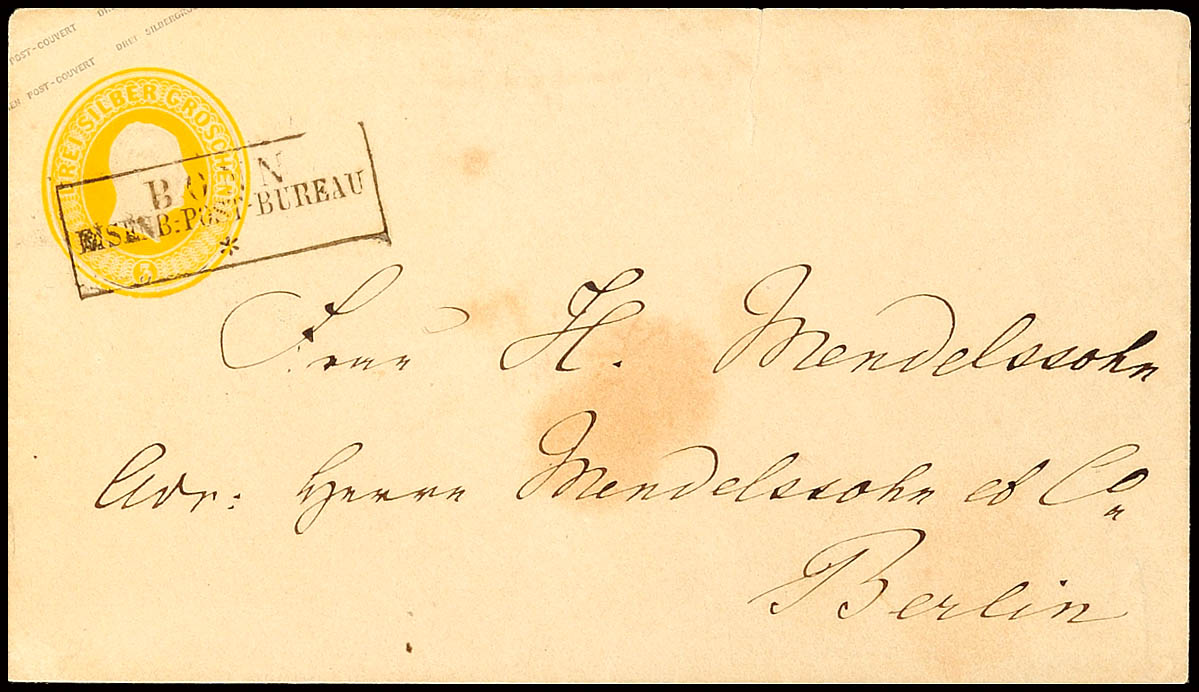 POST-COUVERT DREI SILBERGRO
EN POST-COUVERT DREI SILBERGR
DREI SILBER GROSCHEN
3
BONN
EISENB:POST-BUREAU
*
Frau H. Mendelssohn
Adr: Herrn Mendelssohn et Co
Berlin